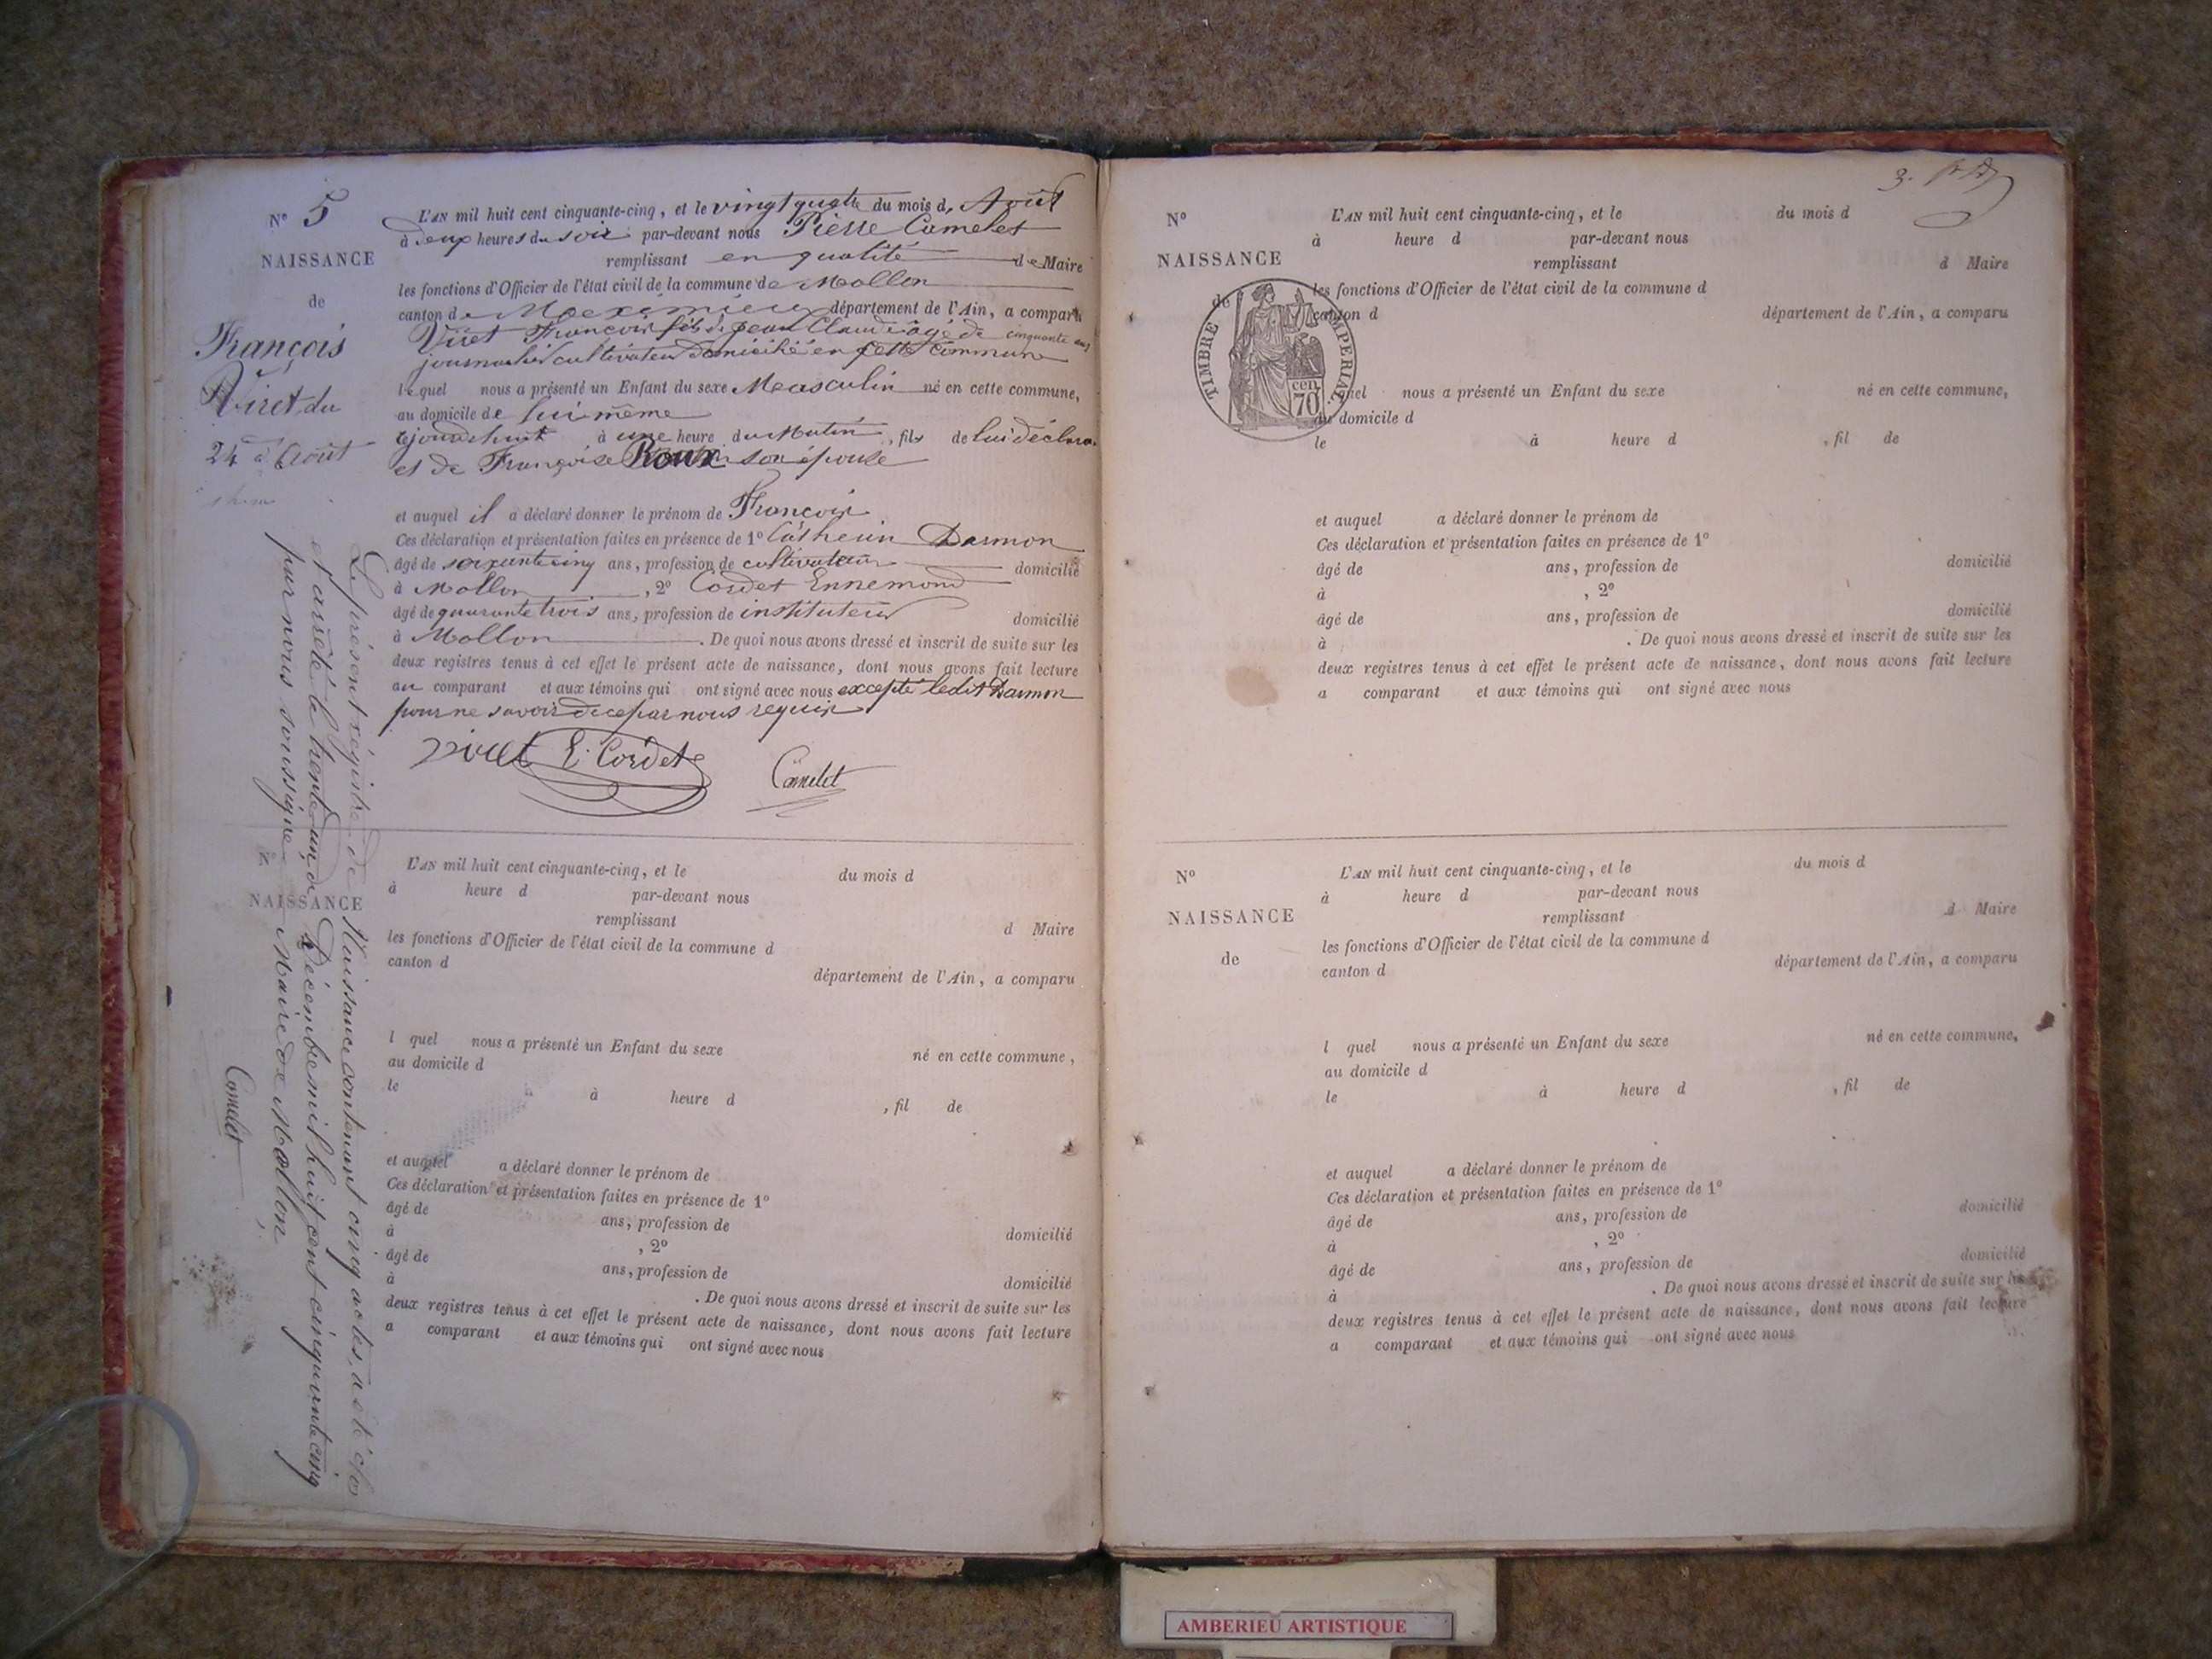 N° 5
NAISSANCE
de
François
Viret du
24 août
L'AN mil huit cent cinquante-cinq, et le vingt quatre du mois d, Août
à deux heures du soir par-devant nous Pierre Camelet
remplissant en qualité de Maire
les fonctions d'Officier de l'état civil de la commune de Mollon
canton de Meximieux département de l'Ain, a comparu
Viret François fils de Jean Claude âgé de cinquante ans
journalier cultivateur domicilié en cette commune
lequel nous a présenté un Enfant du sexe Masculin né en cette commune,
au domicile de lui même
à une heure du Matin, fils de lui déclara
et de Françoise Roux son épouse
et auquel il a déclaré donner le prénom de François
Ces déclaration et présentation faites en présence de 1° Cátherin Darmon
âgé de soixante cinq ans, profession de cultivateur domicilié
à Mollon, 2° Cordet Ennemond
âgé de quarante trois ans, profession de instituteur domicilié
à Mollon. De quoi nous avons dressé et inscrit de suite sur les
deux registres tenus à cet effet le présent acte de naissance, dont nous avons fait lecture
au comparant et aux témoins qui ont signé avec nous excepté ledit Darmon
pour ne savoir de ce par nous requis
Viret E. Cordet Camelet
Le présent régistre de Naissance contenant cinq actes, a été clos
et arrêté le trente un de Décembre mil huit cent cinquante cinq
par nous soussigné Maire de Mollon
Camelet
N°
NAISSANCE
L'AN mil huit cent cinquante-cinq, et le du mois d
à heure d par-devant nous
remplissant d Maire
les fonctions d'Officier de l'état civil de la commune d
canton d département de l'Ain, a comparu
l quel nous a présenté un Enfant du sexe né en cette commune,
au domicile d
le à heure d , fil de
et auquel a déclaré donner le prénom de
Ces déclaration et présentation faites en présence de 1°
âgé de ans, profession de domicilié
à , 2°
âgé de ans, profession de domicilié
à . De quoi nous avons dressé et inscrit de suite sur les
deux registres tenus à cet effet le présent acte de naissance, dont nous avons fait lecture
a comparant et aux témoins qui ont signé avec nous
3.
N°
NAISSANCE
de
TIMBRE IMPERIAL
cen
70
L'AN mil huit cent cinquante-cinq, et le du mois d
à heure d par-devant nous
remplissant d Maire
les fonctions d'Officier de l'état civil de la commune d
canton d département de l'Ain, a comparu
quel nous a présenté un Enfant du sexe né en cette commune,
au domicile d
le à heure d , fil de
et auquel a déclaré donner le prénom de
Ces déclaration et présentation faites en présence de 1°
âgé de ans, profession de domicilié
à , 2°
âgé de ans, profession de domicilié
à . De quoi nous avons dressé et inscrit de suite sur les
deux registres tenus à cet effet le présent acte de naissance, dont nous avons fait lecture
a comparant et aux témoins qui ont signé avec nous
N°
NAISSANCE
de
L'AN mil huit cent cinquante-cinq, et le du mois d
à heure d par-devant nous
remplissant d Maire
les fonctions d'Officier de l'état civil de la commune d
canton d département de l'Ain, a comparu
l quel nous a présenté un Enfant du sexe né en cette commune,
au domicile d
le à heure d , fil de
et auquel a déclaré donner le prénom de
Ces déclaration et présentation faites en présence de 1°
âgé de ans, profession de domicilié
à , 2°
âgé de ans, profession de domicilié
à . De quoi nous avons dressé et inscrit de suite sur les
deux registres tenus à cet effet le présent acte de naissance, dont nous avons fait lecture
a comparant et aux témoins qui ont signé avec nous
AMBERIEU ARTISTIQUE